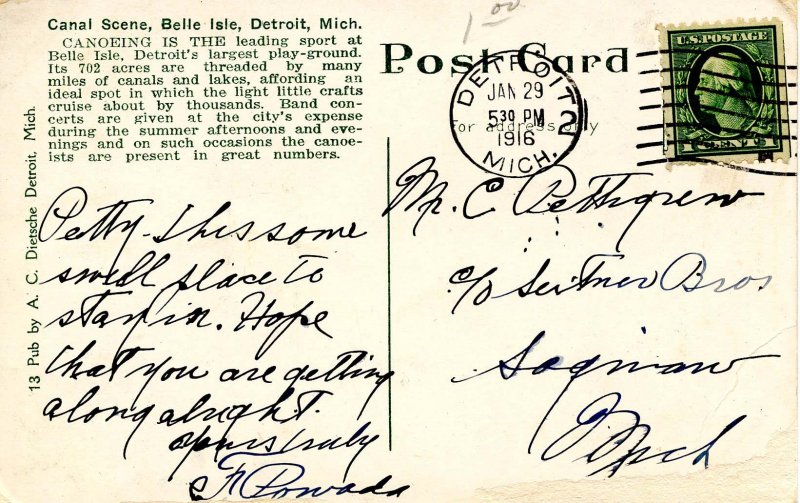 Canal Scene, Belle Isle, Detroit, Mich.
CANOEING IS THE leading sport at
Belle Isle, Detroit's largest play-ground.
Its 702 acres are threaded by many
miles of canals and lakes, affording an
ideal spot in which the light little crafts
cruise about by thousands. Band con-
certs are given at the city's expense
during the summer afternoons and eve-
nings and on such occasions the canoe-
ists are present in great numbers.
13 Pub by A. C. Dietsche Detroit, Mich.
Petty. This some
swell place to
stay in. Hope
that you are getting
along alright.
Yours truly
1.00
Post Card
For address only
DETROIT 2
JAN 29
5 30 PM
1916
MICH.
U.S. POSTAGE
CENTS
Mr. C Pettigrew
c/o Seitner Bros
Saginaw
Mich